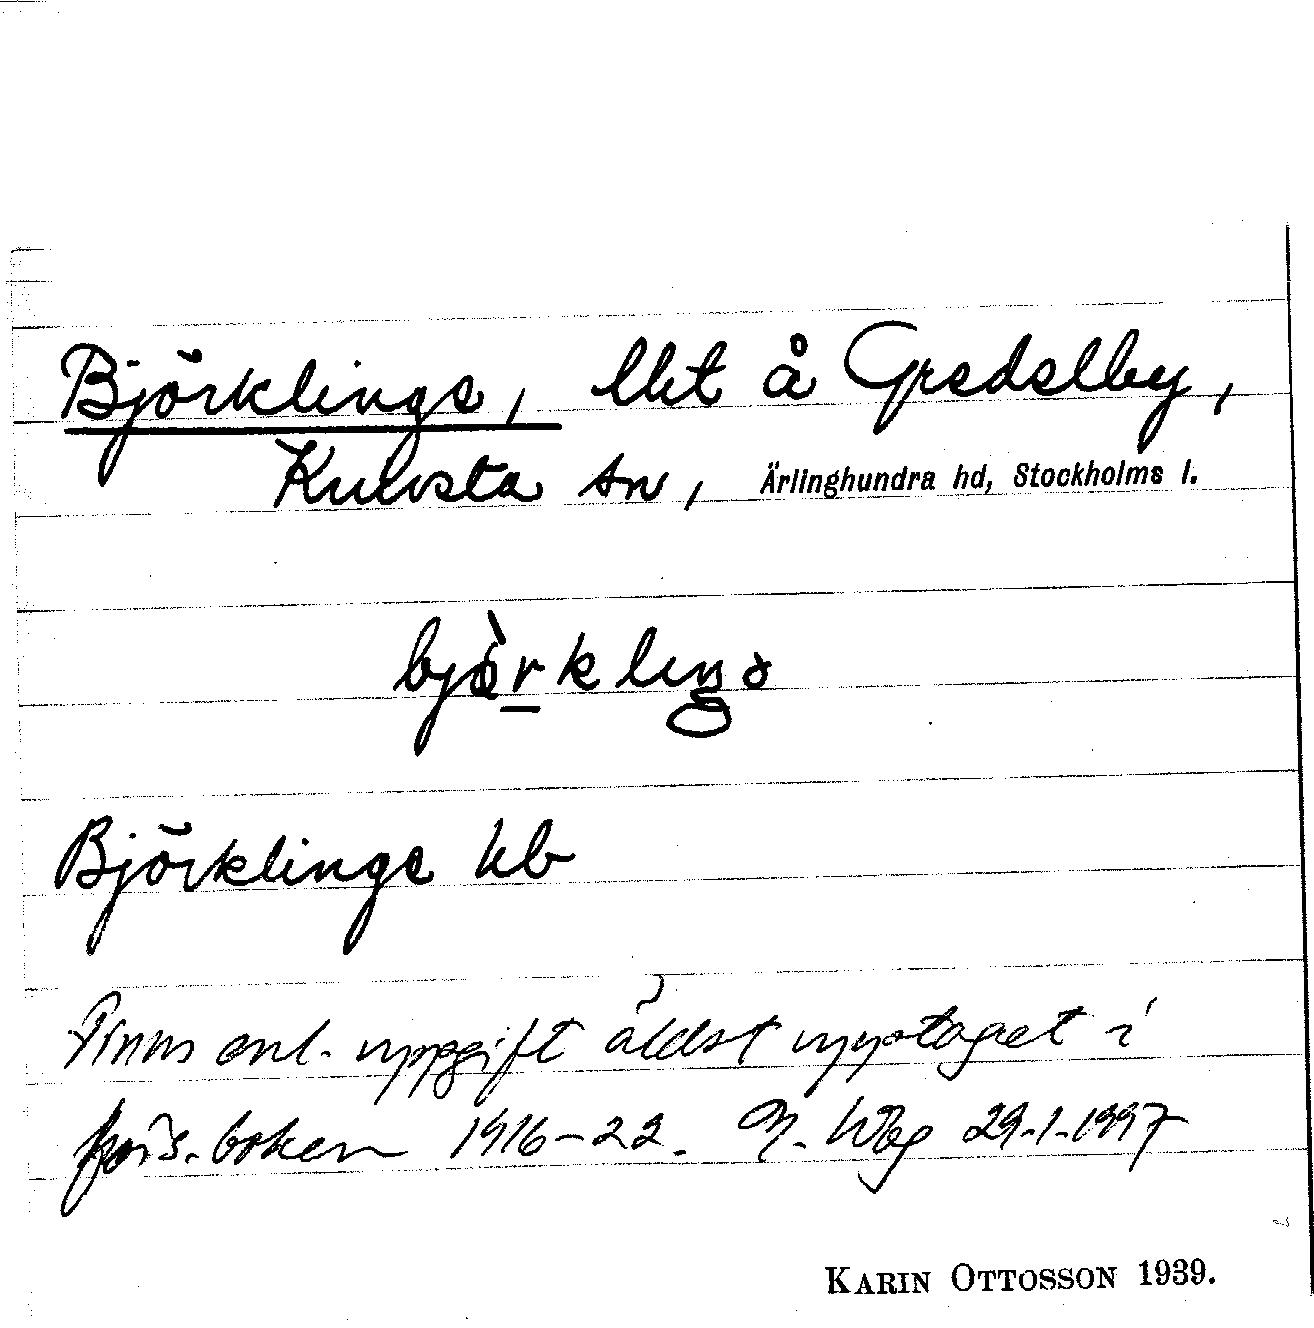 Björklinge, lht å Gredelby,
Knivsta sn, Ärlinghundra hd, Stockholms l.
Björklinge kb
Finns enl. uppgift äldst upptaget i
förs.boken 1916-22. 29.1.1997
KARIN OTTOSSON 1939.